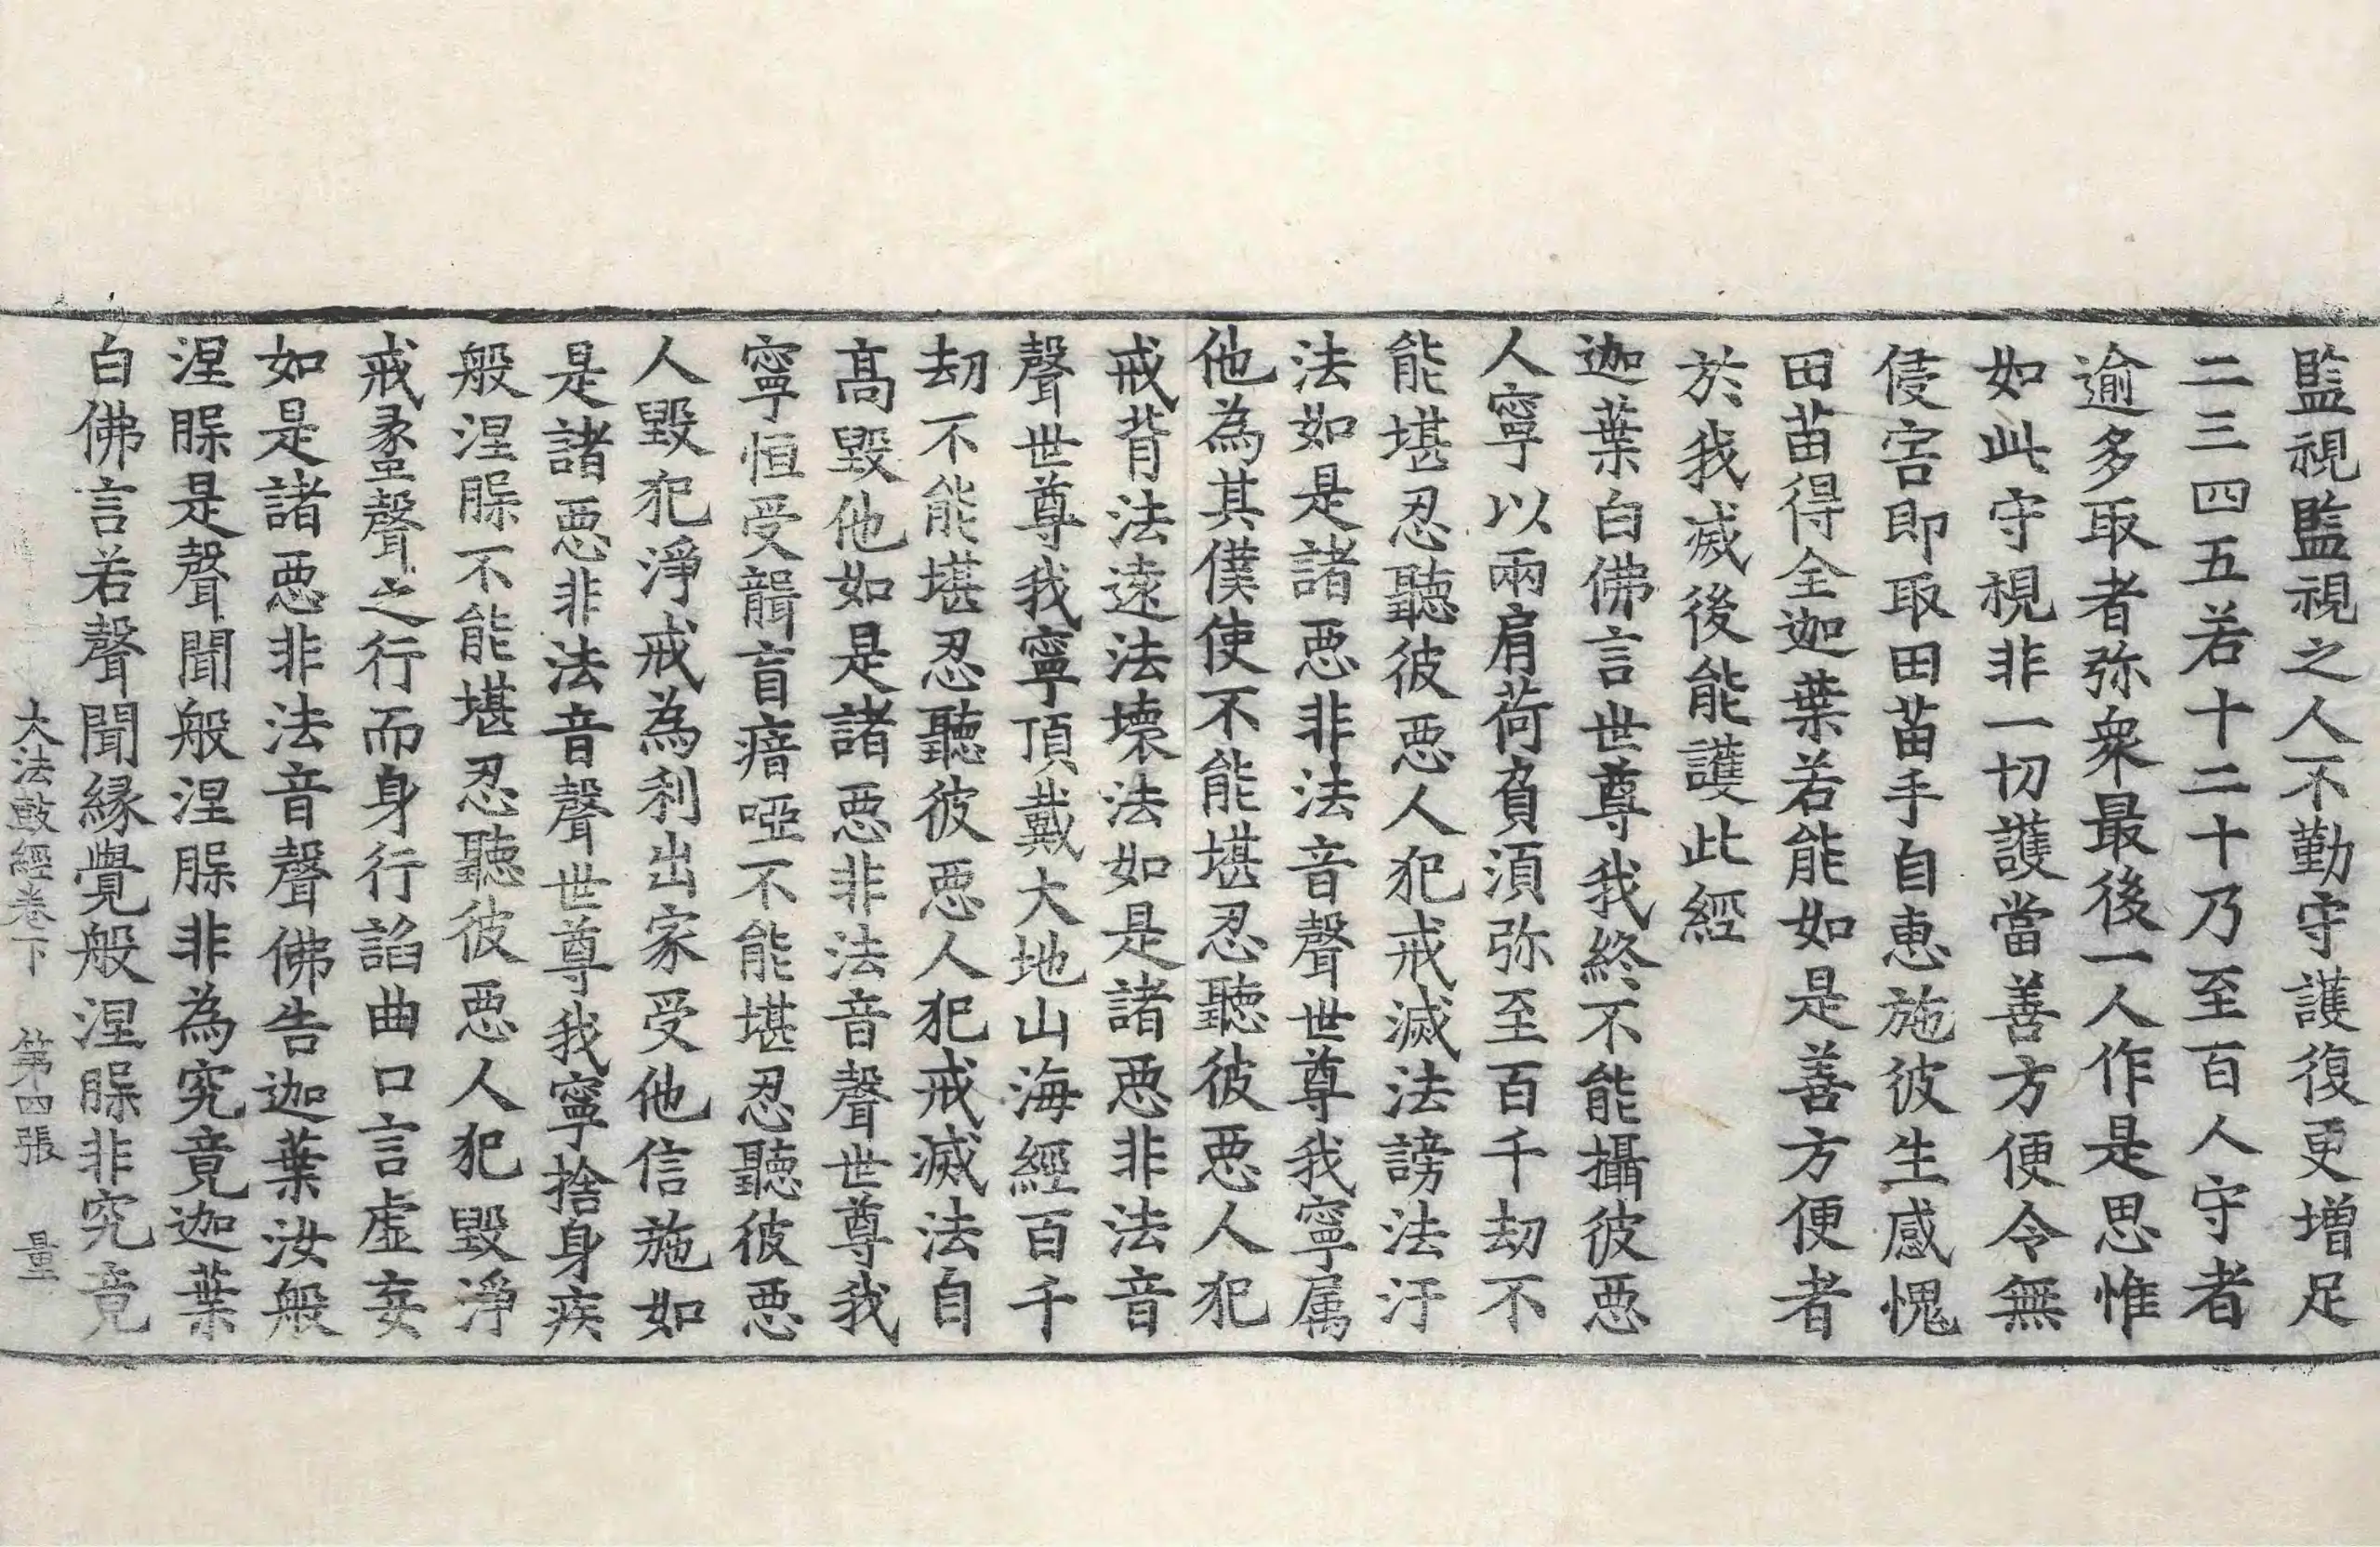 監視監視之人不勤守護復更增足
二三四五若十二十乃至百人守者
逾多取者弥衆最後一人作是思惟
如此守視非一切護當善方便令無
侵害即取田苗手自惠施彼生感愧
田苗得全迦葉若能如是善方便者
於我滅後能護此經
迦葉白佛言世尊我終不能攝彼惡
人寧以兩肩荷負湏弥至百千劫不
能堪忍聽彼惡人犯戒滅法謗法汙
法如是諸惡非法音聲世尊我寧属
他為其僕使不能堪忍聽彼惡人犯
戒背法遠法壞法如是諸惡非法音
聲世尊我寧頂戴大地山海經百千
劫不能堪忍聽彼惡人犯戒滅法自
高毀他如是諸惡非法音聲世尊我
寧恒受聾盲瘖啞不能堪忍聽彼惡
人毀犯淨戒為利出家受他信施如
是諸惡非法音聲世尊我寧捨身疾
般涅槃不能堪忍聽彼惡人犯毀淨
戒蠡聲之行而身行諂曲口言虛妄
如是諸惡非法音聲佛告迦葉汝般
涅槃是聲聞般涅槃非為究竟迦葉
白佛言若聲聞緣覺般涅槃非究竟
大法鼓經卷下 第四張 量